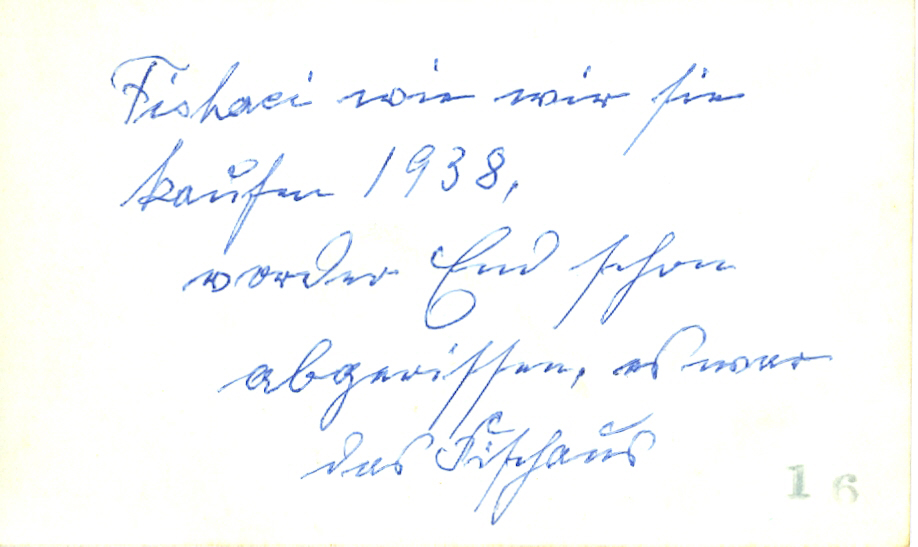 Fishaci wie wir sie
kaufen 1938,
vorder End schon
abgerissen, es war
das Fischaus
16